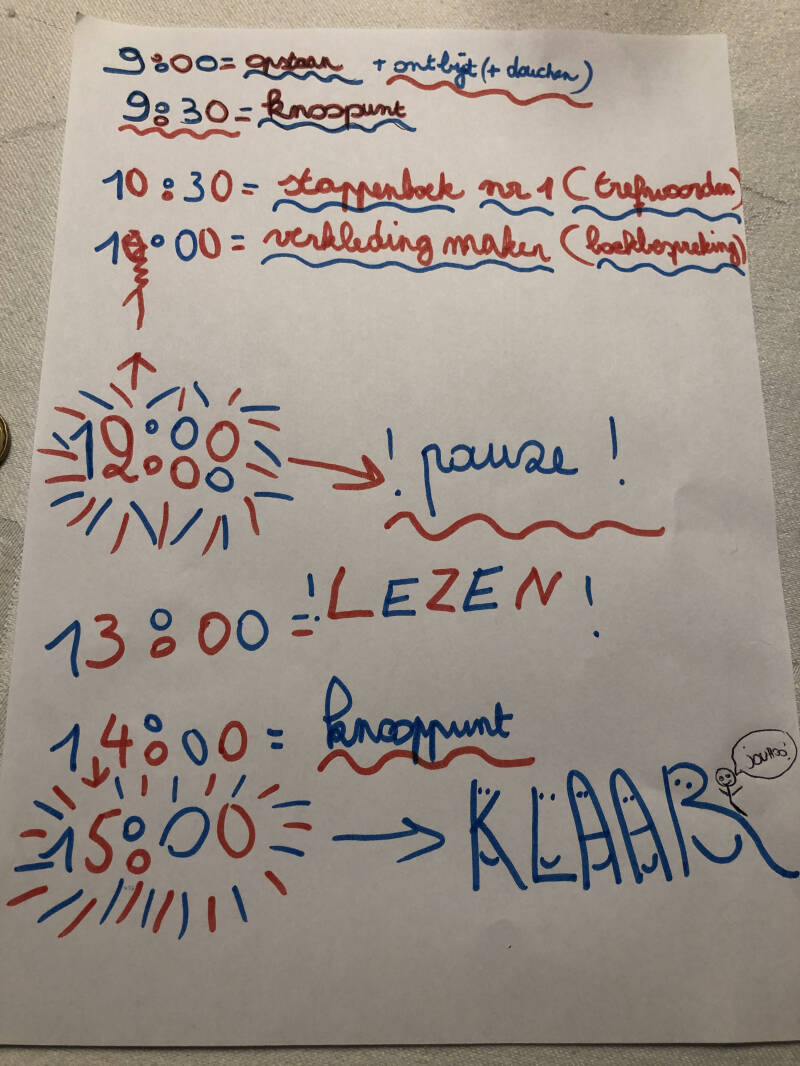 9:00= opstaan + ontbijt (+ douchen)
9:30= knooppunt
10:30= stappenboek nr 1 (trefwoorden)
:00= verkleding maken (boekbespreking)
12:00 ! pauze !
13:00 = ! LEZEN !
14:00= knooppunt
15:00 KLAAR